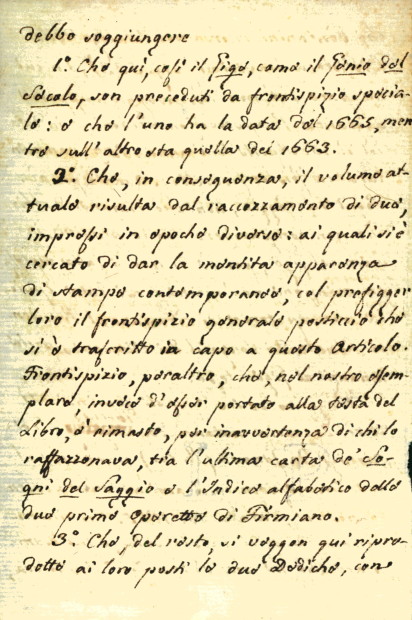 debbo soggiungere
1.º Che qui, così il Gige, come il Genio del
Secolo, son preceduti da frontispizio specia-
le: e che l'uno ha la data del 1665, men
tre sull'altro sta quella dei 1663.
2.º Che, in conseguenza, il volume at-
tuale risulta dal raccozzamento di due,
impressi in epoche diverse: ai quali si è
cercato di dar la mentita apparenza
di stampe contemporanee, col prefigger
loro il frontispizio generale posticcio che
si è trascritto in capo a questo Articolo.
Frontispizio, peraltro, che, nel nostro esem-
plare, invece d'esser portato alla testa del
Libro, è rimasto, per inavvertenza di chi lo
raffazzonava, tra l'ultima carta de' So-
gni del Saggio e l'Indice alfabetico delle
due prime Operette di Firmiano.
3.º Che, del resto, si veggon qui ripro-
dotte ai loro posti le due Dediche, con